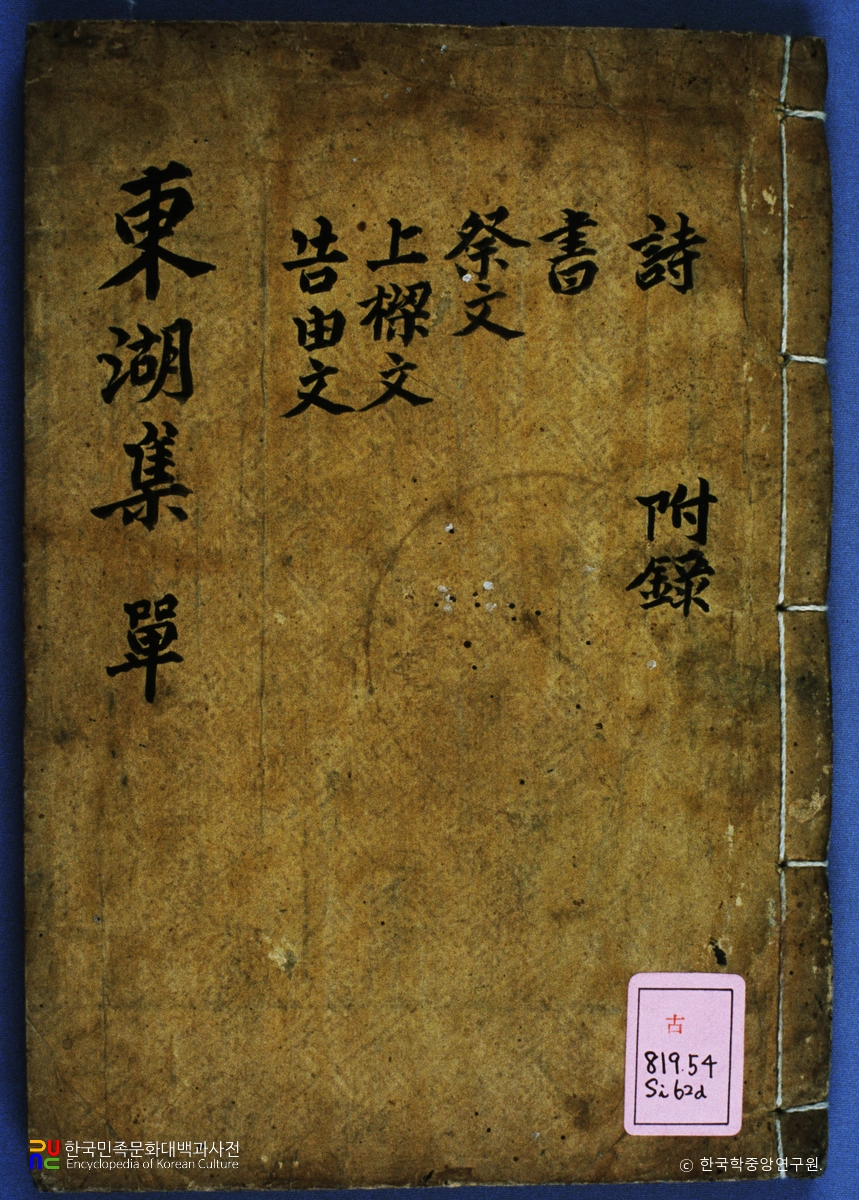 詩
附錄
書
祭文
上樑文
告由文
東湖集 單
古
819.54
Si62d
한국민족문화대백과사전
Encyclopedia of Korean Culture
© 한국학중앙연구원.